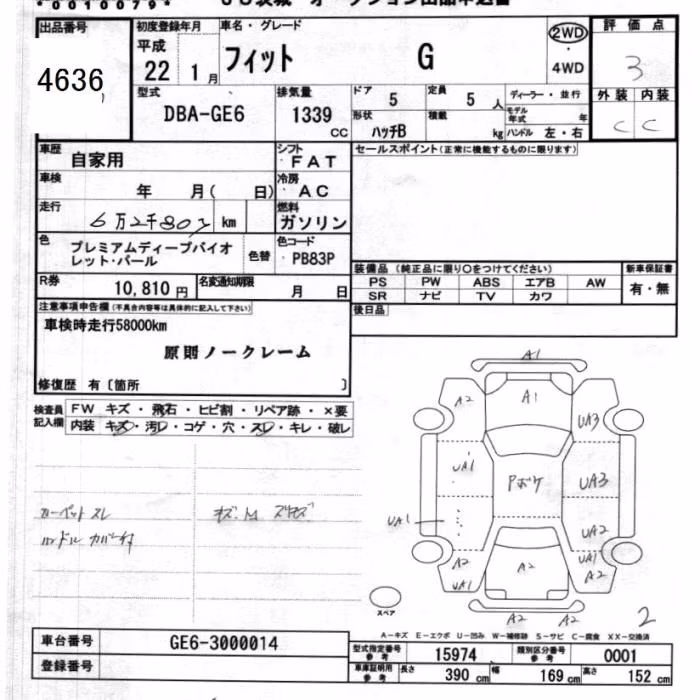 *00100794*
出品番号
4636
初度登録年月
平成
22 1月
車名・グレード
フィット G
2WD
・
4WD
評価点
3
外装 内装
C C
型式
DBA-GE6
排気量
1339
CC
ドア
5
定員
5人
ディーラー・並行
形状
ハッチB
積載
kg
モデル年式 年
ハンドル 左・右
車歴
自家用
シフト
・FAT
セールスポイント(正常に機能するものに限ります)
車検
年 月( 日)
冷房
・AC
走行
km
燃料
ガソリン
色
プレミアムディープバイオ
レット・パール
色替
色コード
PB83P
R券
10,810円
名変通知期限
月 日
装備品 (純正品に限り○をつけてください)
PS PW ABS エアB AW
SR ナビ TV カワ
新車保証書
有・無
後日品
注意事項申告欄(不具合内容等は具体的に記入して下さい)
車検時走行58000km
原則ノークレーム
修復歴 有〔箇所 〕
検査員
記入欄
FW キズ・飛石・ヒビ割・リペア跡・×要
内装 キズ・汚レ・コゲ・穴・スレ・キレ・破レ
カーペット スレ
ハンドル カバー付
A1
A1
A2
UA3
UA1
Pボケ
UA3
UA1
UA2
A2
UA1
A2
UA1
A2
A2 A2
スペア
2
A-キズ E-エクボ U-凹み W-補修跡 S-サビ C-腐食 XX-交換済
車台番号
GE6-3000014
登録番号
型式指定番号
参考
15974
類別区分番号
参考
0001
車庫証明用
参考
長さ
390 cm
幅
169 cm
高さ
152 cm